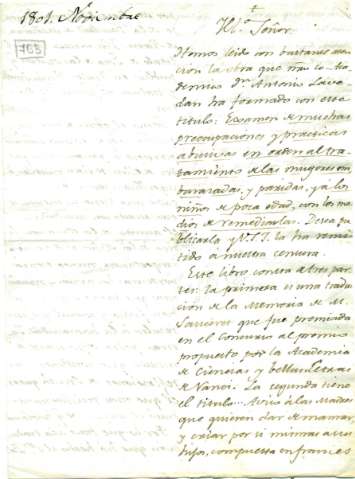 1801. Noviembre
763
Yl.e Señor.
Hemos leido con bastante aten-
cion la obra que nro. co-Aca-
demico Dn. Antonio Lava-
dan ha formado con este
titulo: Examen de muchas
preocupaciones y practicas
abusivas en orden al tra-
tamiento de las mugeres em-
barazadas, y paridas, ya los
niños de poca edad, con los me-
dios de remediarlas. Desea pu-
blicarla y V.S.Y. la ha remi-
tido a nuestra censura.
Este libro consta de tres par-
tes: la primera es una traduc-
cion de la Memoria de M.
que fue premiada
en el Concurso al premio
propuesto por la Academia
de Ciencias y bellas letras
de Nanci. La segunda tiene
el titulo: Aviso à las Madres
que quieren dar de mamar,
y criar por si mismas a sus
hijos, compuesta en frances